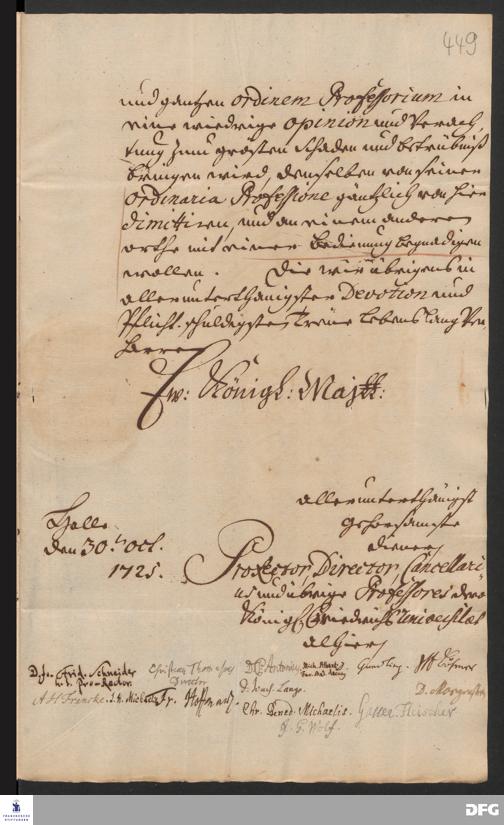 449
und gantzen ordinem Professorium in
eine wiedrige opinion und Verach
tung zum grösten Schaden und betrübniß
bringen wird, denselben von seiner
ordinaria Professione gäntzlich von hier
dimittiren, und an einem anderen
orthe mit einer bedienung begnadigen
wollen. Die wir übrigens in
allerunterthänigster Devotion und
Pflicht-schuldigster treue lebenslang ver
harren
Ew: Königl: Majtt:
allerunterthänigst
gehorsamste
Diener
Halle
den 30.t Oct.
1725.
Prorector, Director Cancellari-
us und übrige Professores dero
Königl. Friedrichs Universität
alhier
D. Jo. Frid. Schneider
h. t. Pro-Rector.
Christian Thomasius
Director
Gundling.
A H Francke. J. H. Michaelis Fr. Hoffmann
D. Joach. Lange.
Chr. Bened. Michaelis.
FRANCKESCHE
STIFTUNGEN
DFG